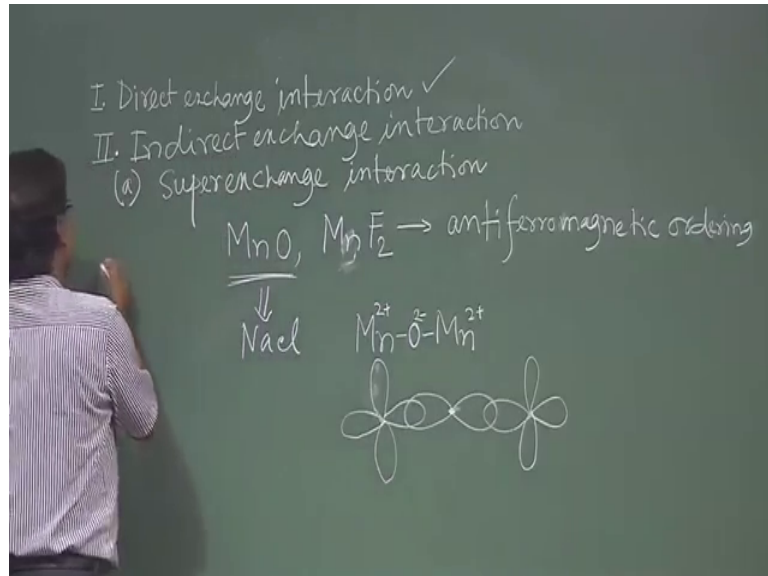 I. Direct exchange interaction ✓
II. Indirect exchange interaction
(a) Superexchange interaction
MnO, MnF₂ → antiferromagnetic ordering
⇓
Nacl Mn²⁺-O²⁻-Mn²⁺